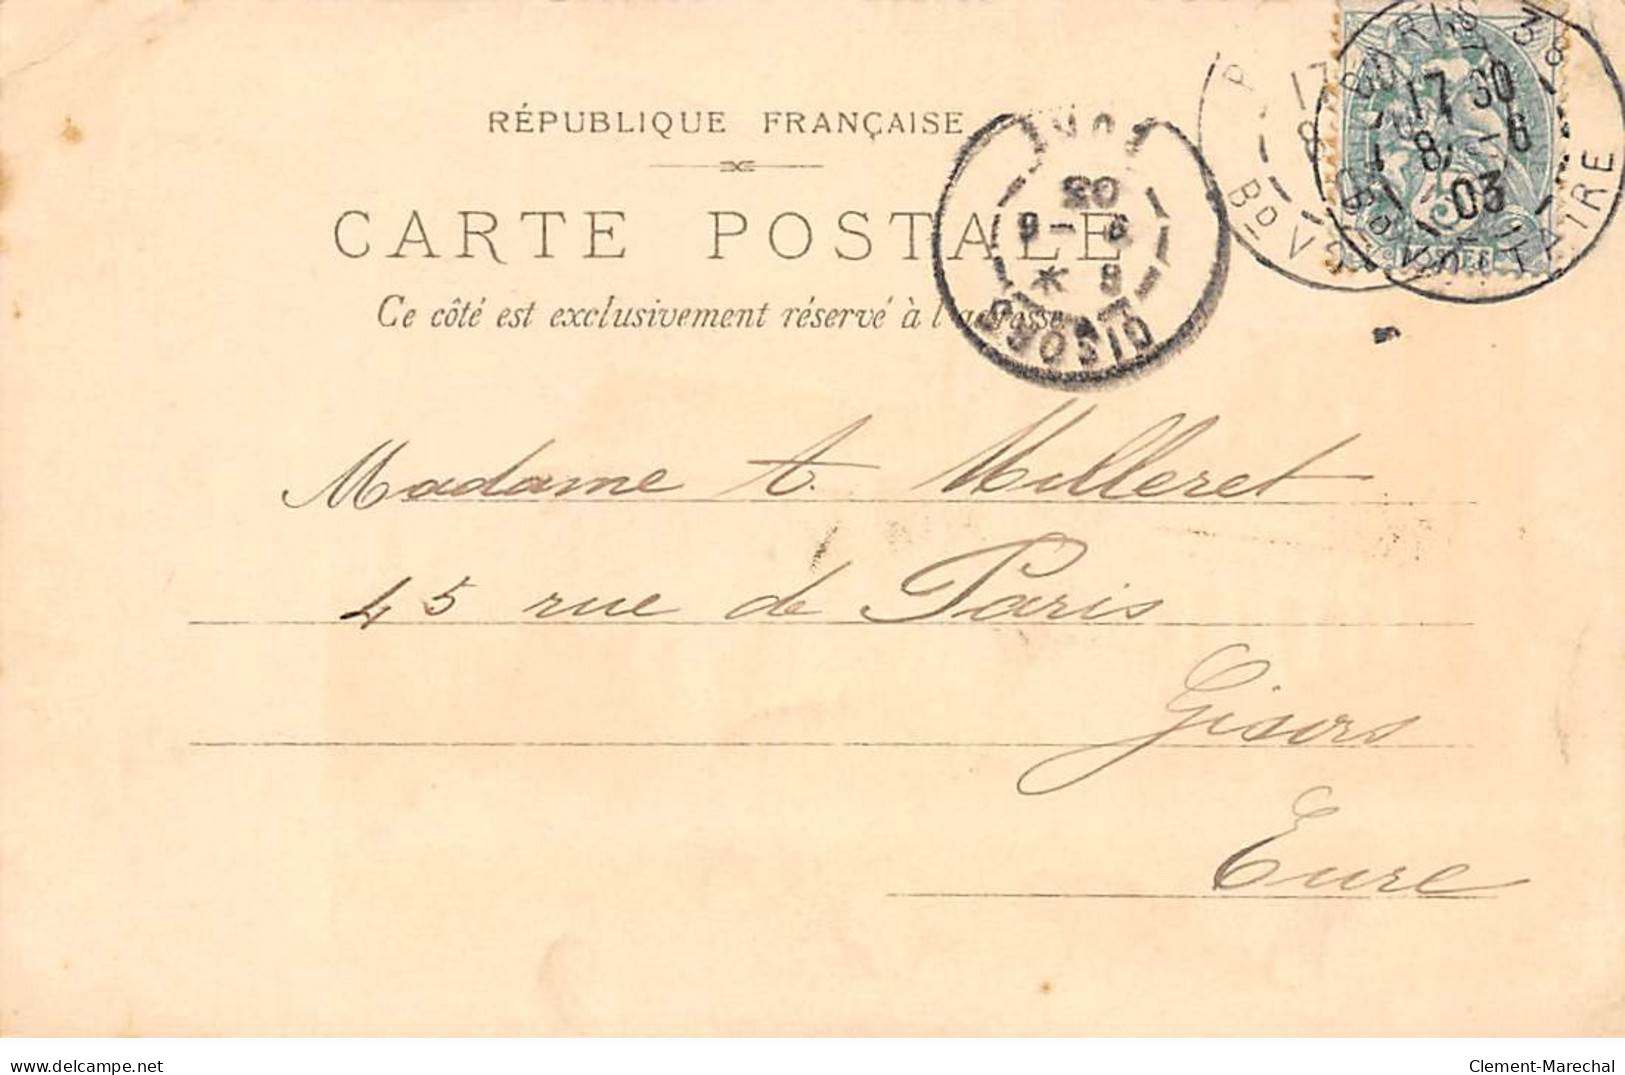 RÉPUBLIQUE FRANÇAISE
CARTE POSTALE
Ce côté est exclusivement réservé à l'adresse
PARIS 38
17 30
8 - 6
03
Bᴰ VOLTAIRE
GISORS
8 *
9 - 6
03
EURE
5
POSTES
Madame A. Milleret
45 rue de Paris
Gisors
Eure
www.delcampe.net
Clement-Marechal